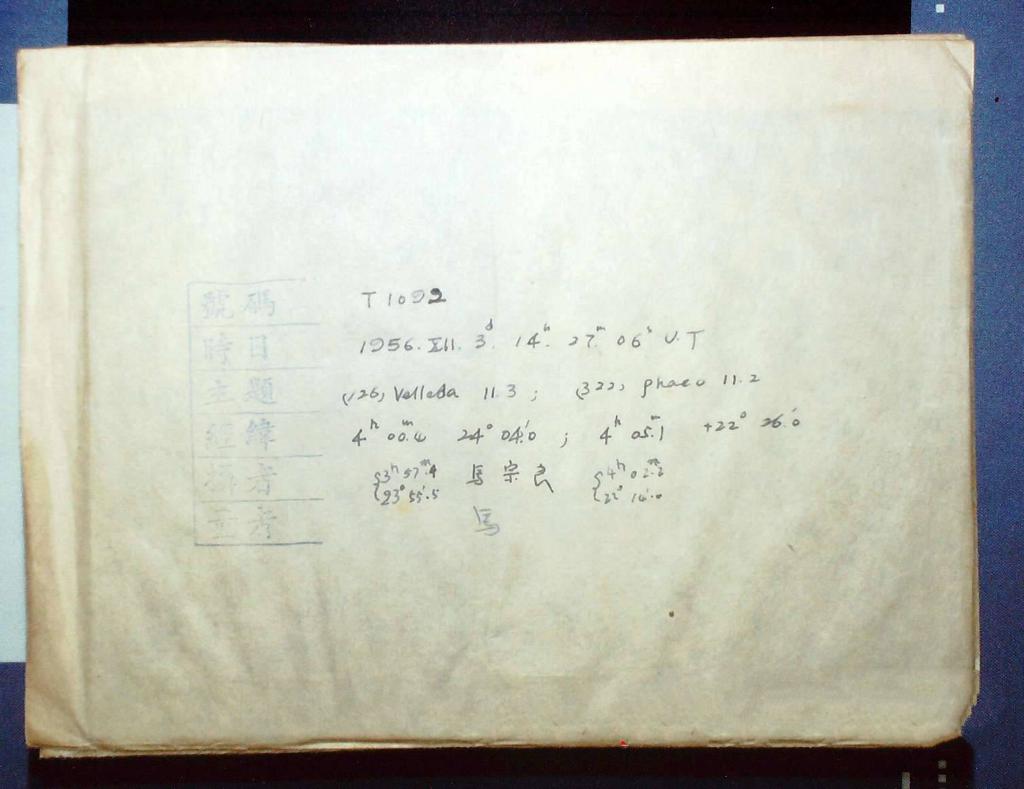 號碼 T1092
時日 1956. XII. 3ᵈ. 14ʰ. 27ᵐ 06ˢ U.T
主題 (126) Velleda 11.3 ; (322) phaeo 11.2
經緯 4ʰ 00ᵐ.4 24° 04'.0 ; 4ʰ 05ᵐ.1 +22° 26'.0
者 {3ʰ 57ᵐ.4 馬宗良 {4ʰ 02ᵐ.2
{23° 55'.5 {22° 14'.0
考 馬